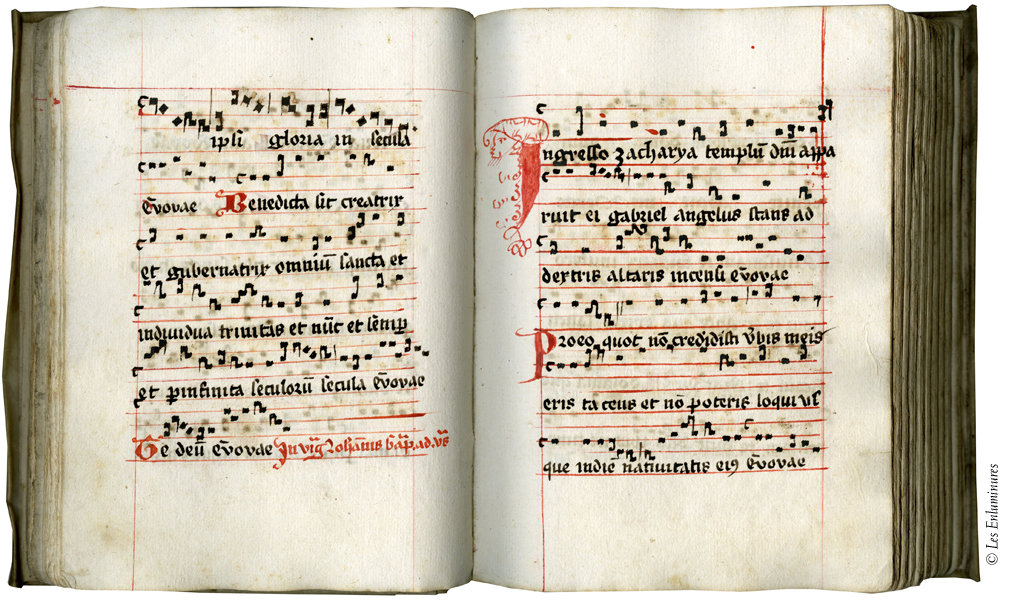 ipsi gloria in secula
Evovae Benedicta sit creatrix
et gubernatrix omniū sancta et
individua trinitas et nūc et sēmp
et pinfinita seculorū secula Evovae
Te deū Evovae In vig Johānis bap. ad. vs
Ingresso zacharya templū dnī appa
ruit ei gabriel angelus stans ad
dextris altaris incensi Evovae
Proeo quot nō credidisti vbis meis
eris taceus et nō poteris loqui usī
que indie nativitatis ei9 Evovae
© Les Enluminures